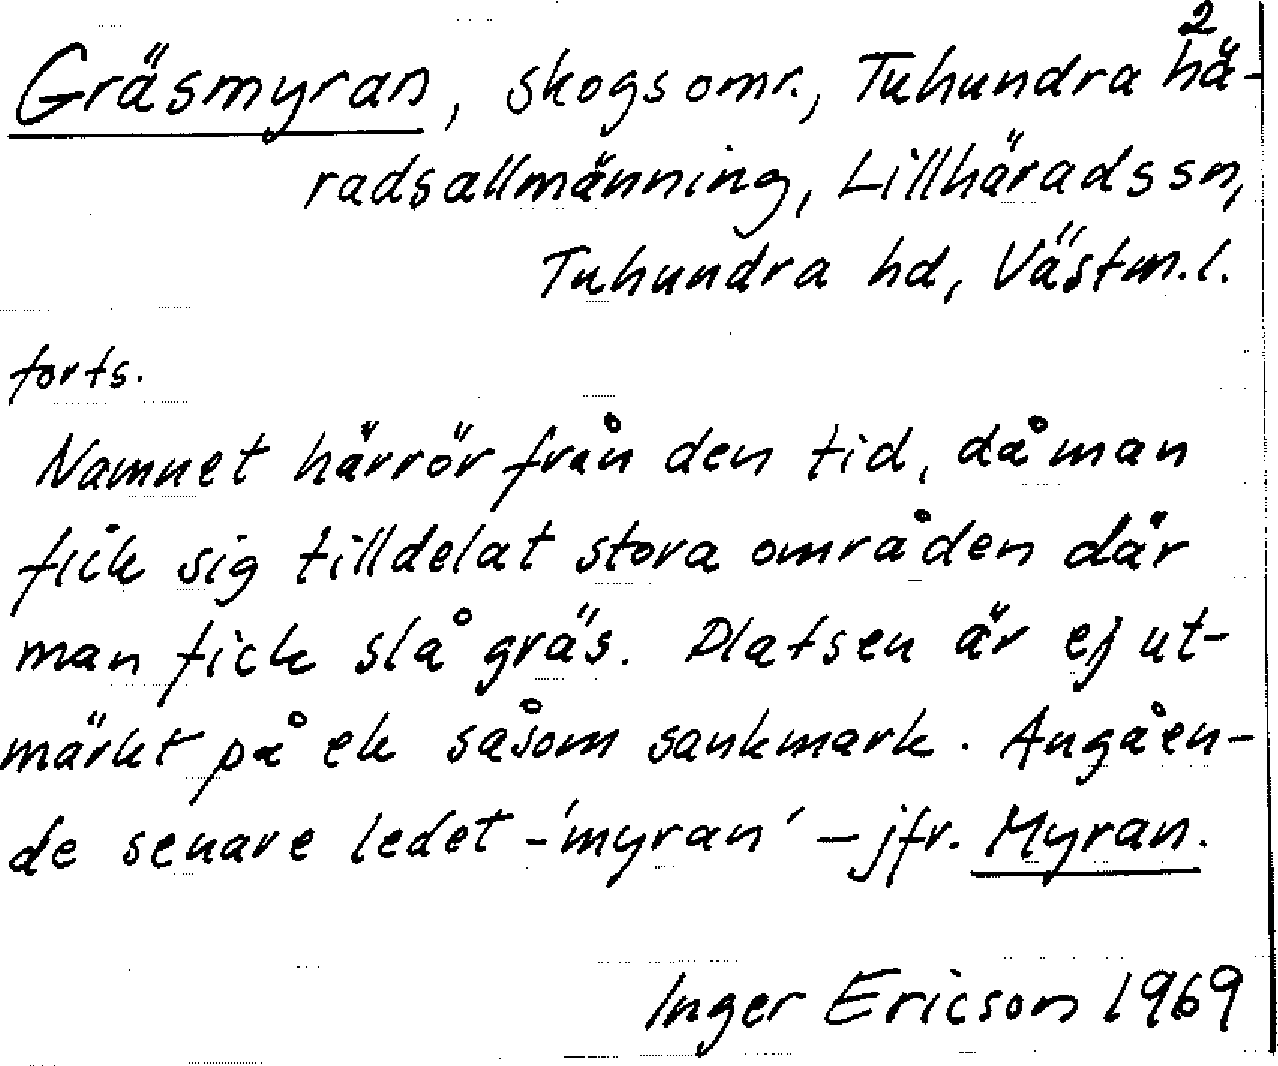 2
Gräsmyran, skogsomr., Tuhundra hä-
radsallmänning, Lillhärads sn,
Tuhundra hd, Västm.l.
forts.
Namnet härrör från den tid, då man
fick sig tilldelat stora områden där
man fick slå gräs. Platsen är ej ut-
märkt på ek såsom sankmark. Angåen-
de senare ledet -'myran' - jfr. Myran.
Inger Ericson 1969